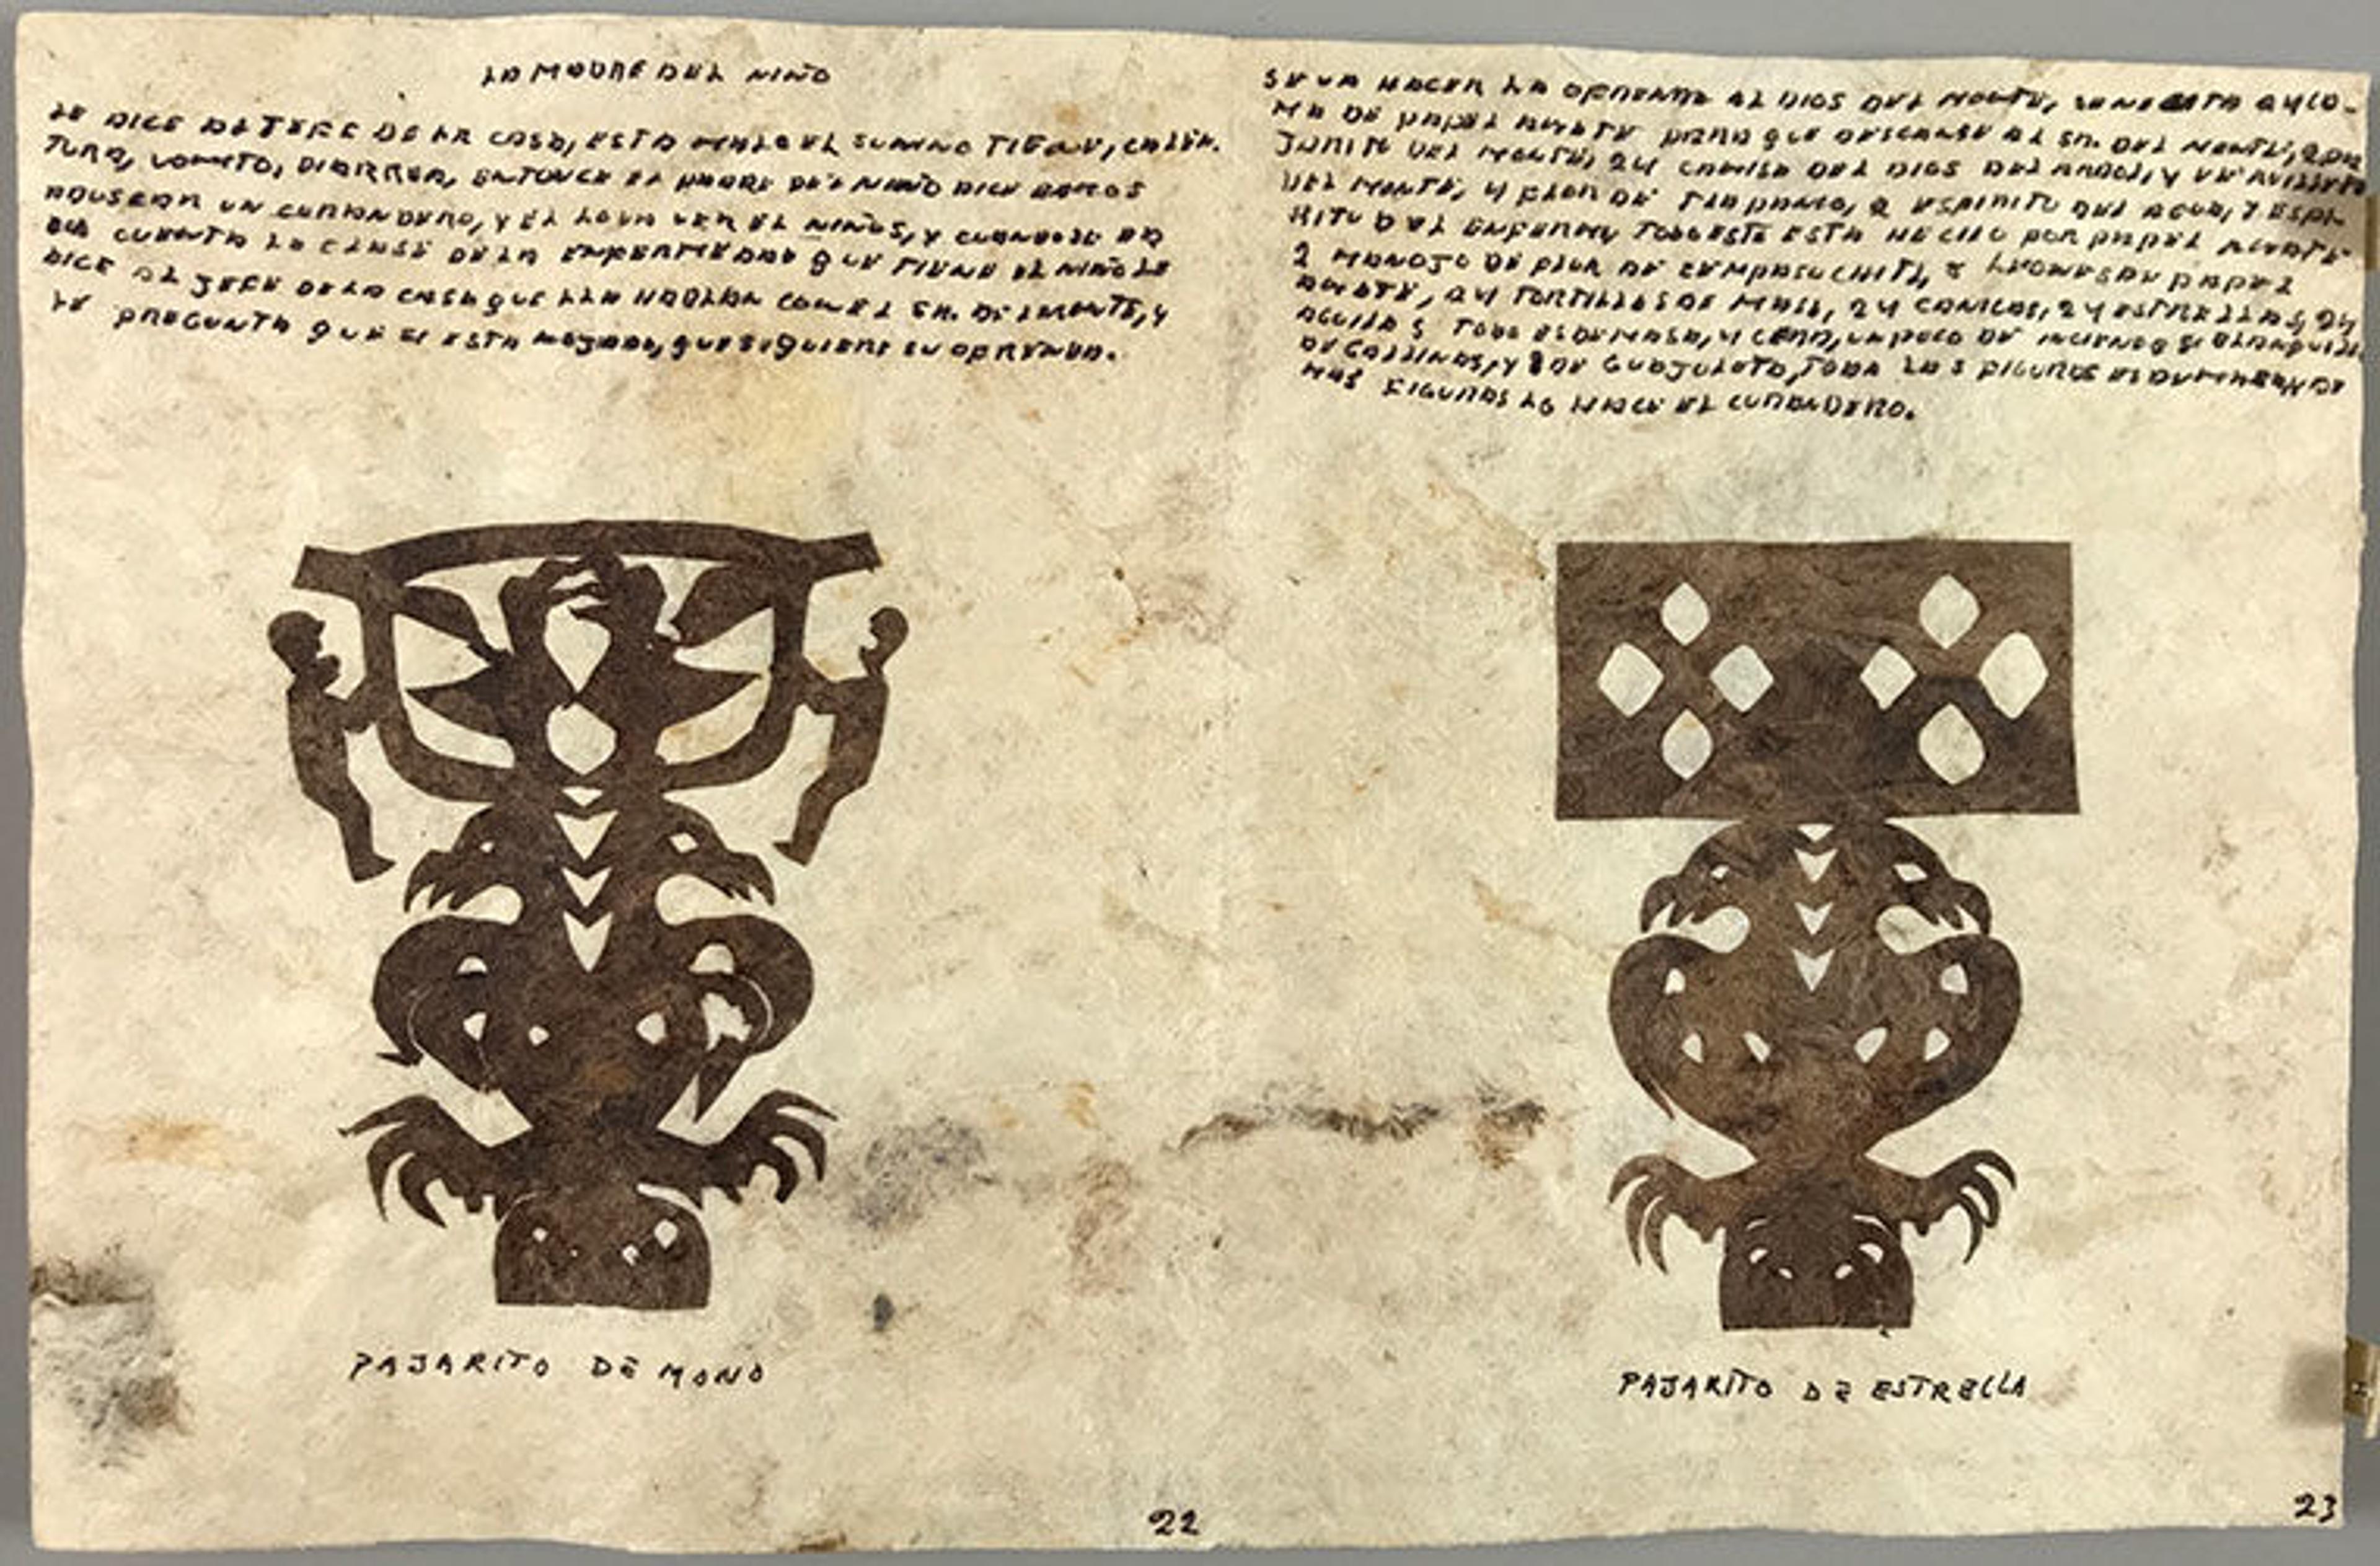 LA MADRE DEL NIÑO
LE DICE AL JEFE DE LA CASA, ESTA MALO EL SU NINO TIENE, CALEN.
TURA, VOMITO, DIARREA, ENTONCE EL PADRE DEL NIÑO DICE BAMOS
ABUSCAR UN CURANDERO, Y EL VER EL NIÑOS, Y CUANDO SE DA
CUENTA LA CLASE DE LA ENFERMEDAD QUE TIENE EL NIÑO LE
DICE AL JEFE DE LA CASA QUE HABLAR CON EL SR. DEL MONTE, Y
LE PREGUNTA QUE SI ESTA QUE SI QUIERE SU OFRENDA.
SE VA HACER LA OFRENDA AL DIOS DEL MONTE,
MA DE PAPEL AMATE PARA QUE DESCANSE AL SR. DEL MONTE,
DEL MONTE, 24 CAMISA DEL DIOS DEL ARBOL, Y
DEL MONTE, Y FLOR DE 2 ESPIRITU DEL AGUA, 2 ESPI-
RITU DEL ENFERMO TODO ESTE ESTA HECHO POR PAPEL AMATE
2 MANOJO DE FLOR DE CEMPASUCHITL, PAPEL
AMATE, 24 TORTILLAS DE MASA, 24 CANICAS, 24 ESTRELLAS, 24
AGUILAS TODO ES DE MASA, Y CERA, UN POCO DE
DE GALLINAS, Y DE GUAJOLOTO, TODA LAS FIGURAS
MAS FIGURAS LO HACE EL CURANDERO.
PAJARITO DE MONO
PAJARITO DE ESTRELLA
22
23